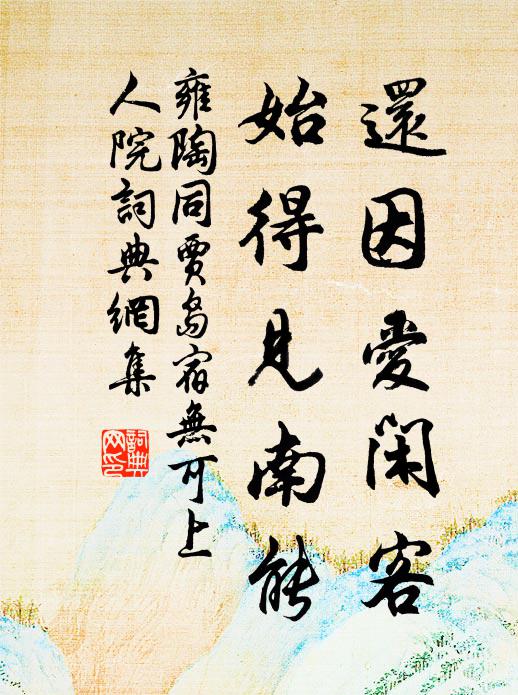 還因愛閑客
始得見南能
雍陶同賈島宿無可上
人院詞典網集
詞典
网印